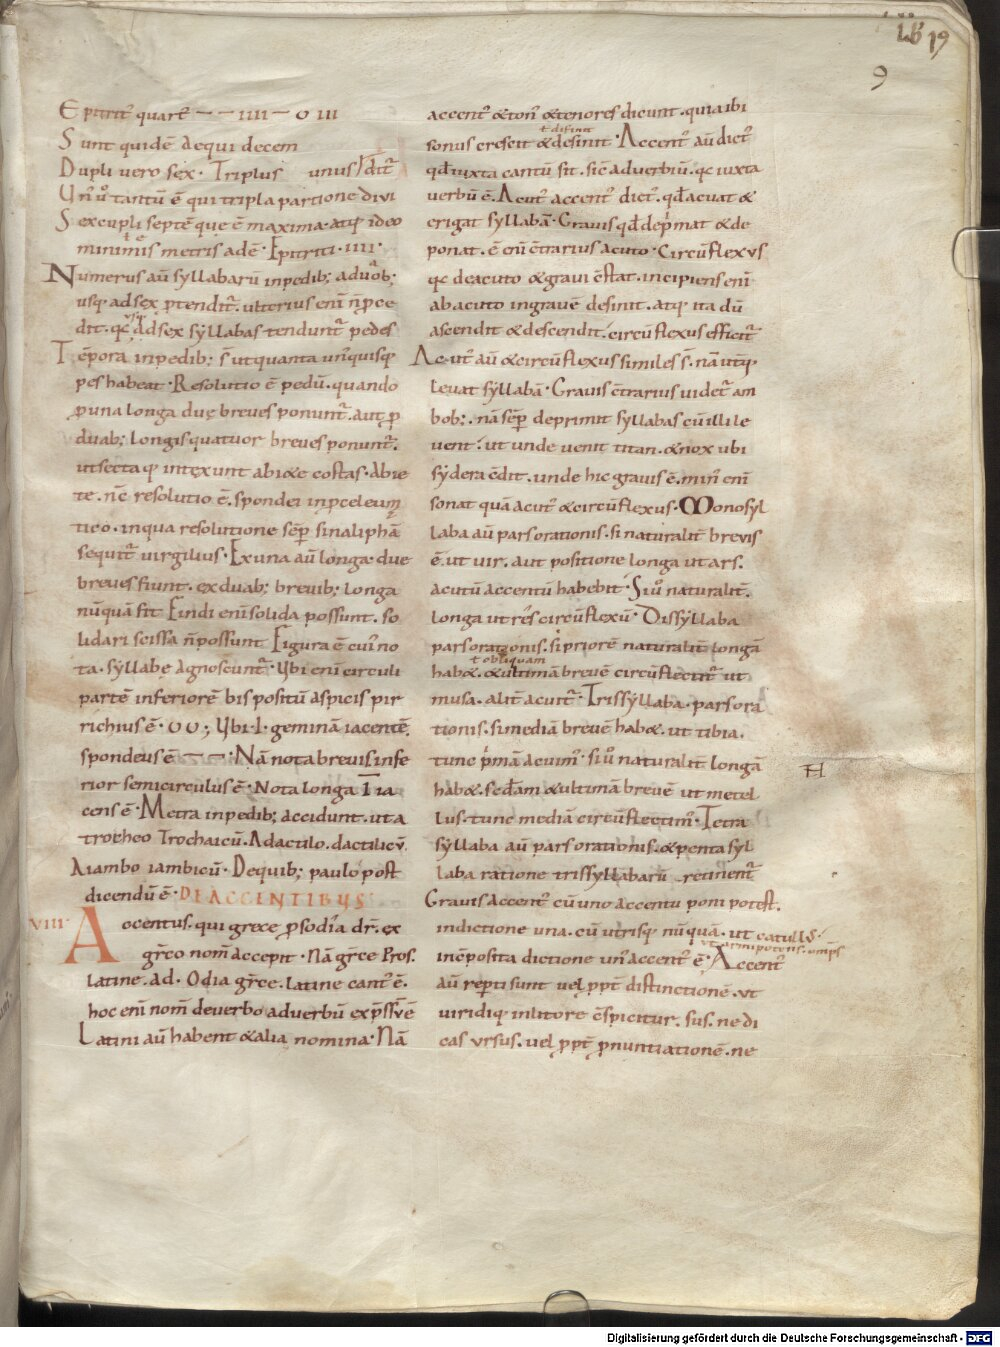 Lib̅ 19
9
Epitrit᷒ quart᷒ — — IIII — O III
Sunt quidē aequi decem
Dupli vero sex · Triplus unus / dict᷒
Vn᷒ u᷒ tantū ē qui tripla partione divi
Sexcupli septē que ē maxima · atq; ideo
minimis metris adē · Epitriti · IIII ·
Numerus aū syllabarū inpedib; adu
usq; ad sex p̱tendit᷒. ulterius eni n̄ p̱ce
dit. qc̄ ad sex syllabas tendunt᷒ pedes
Tēpora inpedib; s̄ ut quanta un᷒quisq;
pes habeat · Resolutio ē pedū. quando
p̱ una longa duę breves ponunt᷒. aut p̱
duab; longis quatuor breves ponunt᷒.
ut secta q; intexunt abi&e costas · Abie
te. nē resolutio ē. spondei inp̱celeum
tico. inqua resolutione sēp̱ sinaliphā
sequit᷒ virgilius · Ex una aū longa due
breves fiunt. ex duab; brevib; longa
nūquā fit Findi enī solida possunt. so
lidari scissa n̄ possunt Figura ē cui᷒ no
ta. syllabę agnoscunt᷒ · Vbi enī circuli
partē inferiorē bis positū aspicis pir
richius ē · ᴗᴗ; Vbi · I · geminā iacentē.
spondeus ē — — · Nā nota brevis. infe
rior semicirculus ē · Nota longa I ia
cens ē · Metra inpedib; accidunt. ut a
trocheo Trochaicū. Adactilo. dactilicū.
Aiambo iambicū · Dequib; paulo post
dicendū ē · DE ACCENTIBUS
VIII · Accentus. qui grece p̱sodia dr̄. ex
grēco nom̄ accepit · Nā grēce Pros.
Latine. ad. Odia grēce. Latine cant᷒ ē.
hoc enī nom̄ deverbo adverbū exp̱ssū ē
Latini aū habent & alia nomina · Nā
accent᷒ & ton᷒ & tenores dicunt. quia ibi
ł difinit
sonus crescit & desinit · Accent᷒ aū dict᷒
qd̄ iuxta cantū sit. sic̄ adverbiū. qc̄ iuxta
verbū ē. Acut᷒ accent᷒ dict᷒. qd̄ acuat &
erigat syllabā · Gravis qd̄ dep̱mat & de
ponat. ē enī c̄trarius acuto · Circūflexus
qc̄ deacuto & gravi c̄stat. incipiens enī
ab acuto ingravē desinit. atq; ita dū
ascendit & descendit. circūflexus efficit᷒
Acut᷒ aū & circūflexus similes s̄. nā utq;
levat syllabā · Gravis c̄trarius videt᷒ am
bob;. nā sēp̱ deprimit syllabas cū illi le
vent. ut unde venit titan. & nox ubi
sydera c̄dit. unde hic gravis ē. min᷒ enī
sonat quā acut᷒ & circūflexus · Monosyl
laba aū pars orationis. si naturalit̄ brevis
ē. ut vir. aut positione longa ut ars.
acutū accentū habebit · Si u᷒ naturalit̄.
longa ut res circūflexū · Dissyllaba
pars orationis. si priorē naturalit̄ longā
ł obliquam
hab&. & ultimā brevē circūflectit᷒ ut
musa. alit̄ acuit᷒ · Trissyllaba · pars ora
tionis. si mediā brevē hab&. ut tibia.
tunc p̱mā acuim᷒ · si u᷒ naturalit̄ longā
hab&. sed̄am & ultimā brevē ut metel
lus. tunc mediā circūflectim᷒ · Tetra
syllaba aū pars orationis. & penta syl
laba ratione trissyllabarū retinent᷒
Gravis accent᷒ cū uno accentu poni potest.
indictione una. cū utrisq; nūquā. ut catullus.
ut armipotens. omps
inc̄posita dictione un᷒ accent᷒ ē · Accent᷒
aū rep̱ti sunt vel p̱pt̄ distinctionē. ut
viridiq; inlitore c̄spicitur. sus. ne di
cas ursus. vel p̱pt̄ p̱nuntiationē. ne
Digitalisierung gefördert durch die Deutsche Forschungsgemeinschaft - DFG